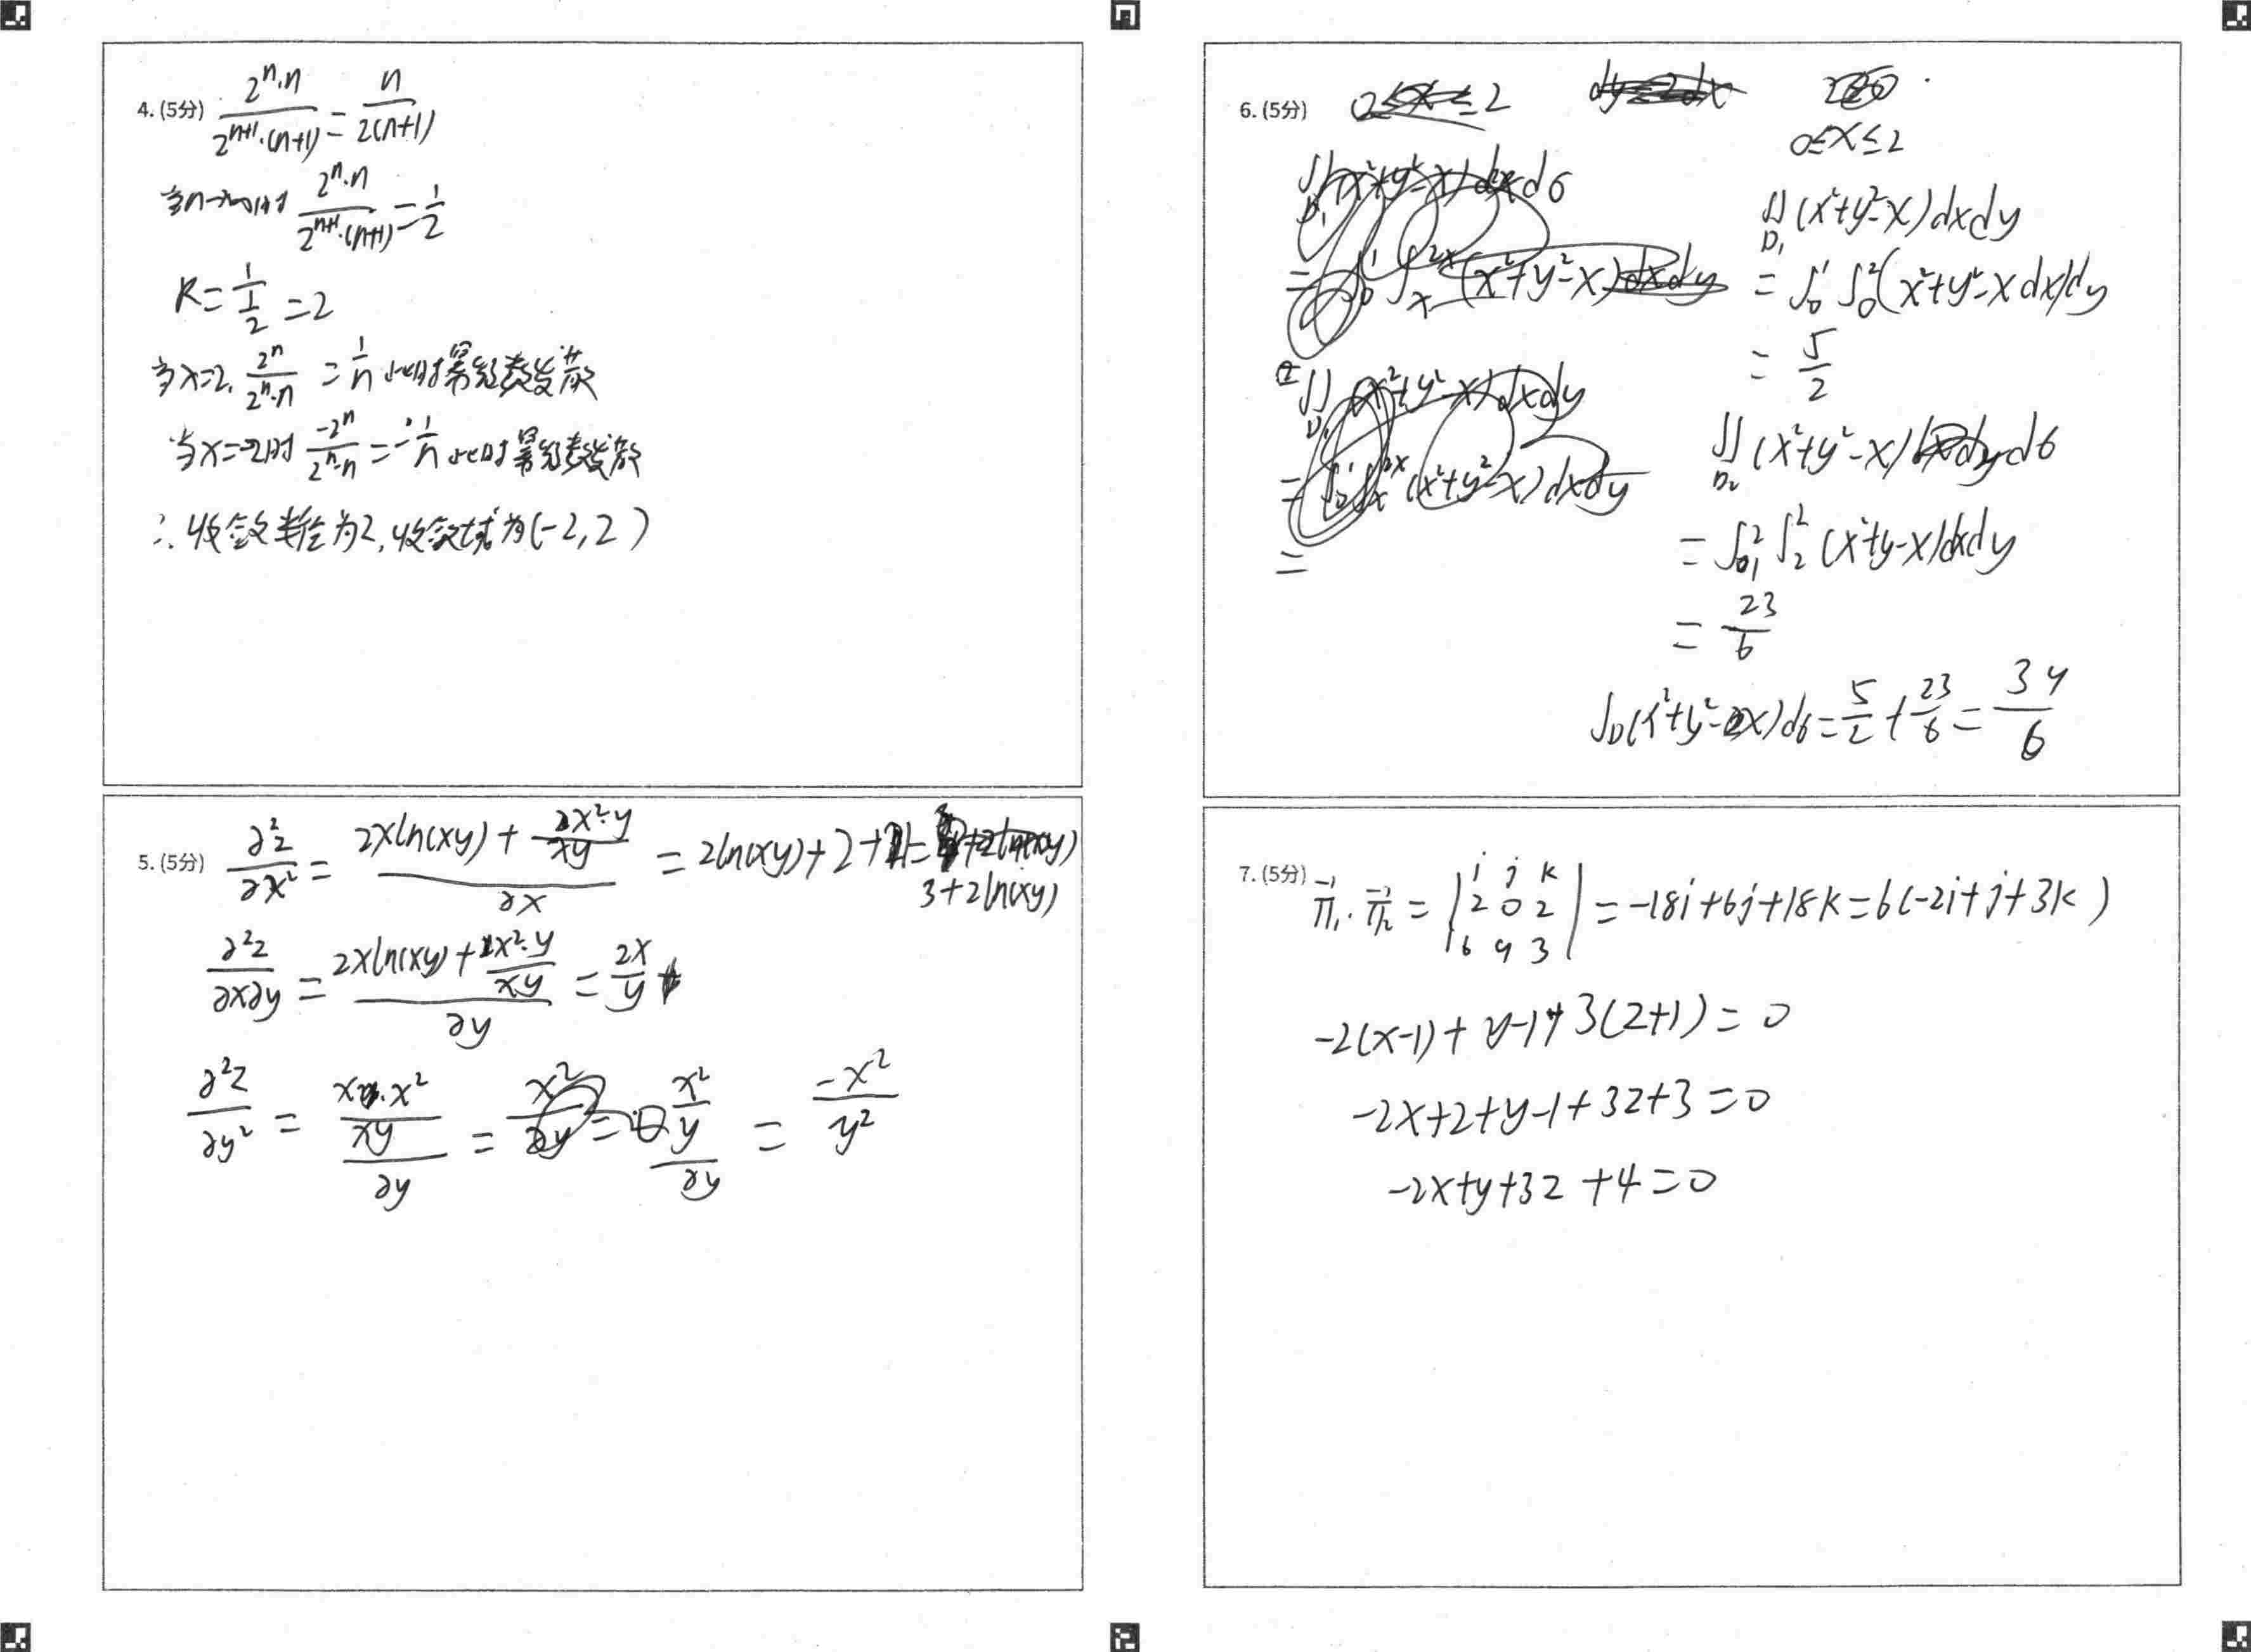 4. (5分) 2ⁿ·n / 2ⁿ⁺¹·(n+1) = n / 2(n+1)
当n→∞时 2ⁿ·n / 2ⁿ⁺¹·(n+1) = 1/2
R = 1/(1/2) = 2
当x=2, 2ⁿ / 2ⁿ·n = 1/n 此时幂级数发散
当x=-2时 -2ⁿ / 2ⁿ·n = -1/n 此时幂级数发散
∴收敛半径为2,收敛域为(-2,2)
5. (5分) ∂²z/∂x² = (2xln(xy) + x²·y/xy) / ∂x = 2ln(xy)+2+1=
3+2ln(xy)
∂²z/∂x∂y = (2xln(xy) + x²·y/xy) / ∂y = 2x/y
∂²z/∂y² = (x·x²/xy) / ∂y = = (x²/y) / ∂y = -x²/y²
6. (5分)
0≤x≤2
∬D₁ (x²+y²-x)dxdy
= ∫₀¹ ∫₀² (x²+y²-x dx)dy
= 5/2
∬D₂ (x²+y²-x)dσ
(x²+y-x)dxdy
= 23/6
∫D(x²+y²-x)dσ = 5/2 + 23/6 = 34/6
7. (5分) n₁·n₂ = | i j k | = -18i+6j+18k=6(-2i+j+3k)
2 0 2
6 9 3
-2(x-1)+y-1+3(z+1)=0
-2x+2+y-1+3z+3=0
-2x+y+3z+4=0